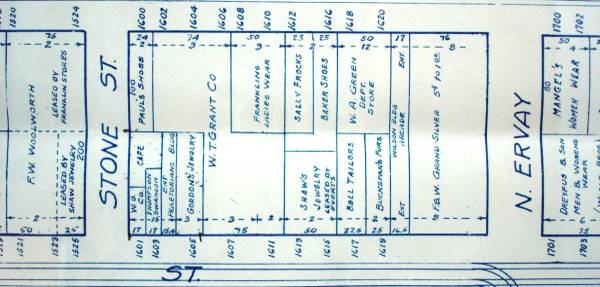 1520
1524
1600
1602
1604
1606
1608
1610
1612
1616
1618
1620
1700
1702
75
24
74
50
25
25
50
17
76
50
2
3
3
2
2
12
8
4
F.W. WOOLWORTH
LEASED BY
FRANKLIN STORES
LEASED BY
SHAW JEWELRY
200
STONE ST.
100
PAUL'S SHOES
CAFE
THOMPSON
& SWANSON
ENT
PRAETORIANS BLDG
GORDON'S JEWELRY
W.T. GRANT CO
FRANKLINS
LADIES WEAR
SALLY FROCKS
BAKER SHOES
SHAW'S
JEWELRY
LEASED BY
W.A. GREEN
DEPT.
STORE
BELL TAILORS
BUCKSPAN'S FURS
ENT.
WILSON BLDG
ARCADE
ENT
N. ERVAY
80
MANGEL'S
WOMEN WEAR
DREYFUS & SON
MEN & WOMENS
WEAR
2
2
2
2
3
2
2
2
2
50
25
17
17
75
50
27.5
25
16.5
75
1521
1523
1525
1601
1603
1605
1607
1611
1613
1615
1617
1619
1701
1703
ST.